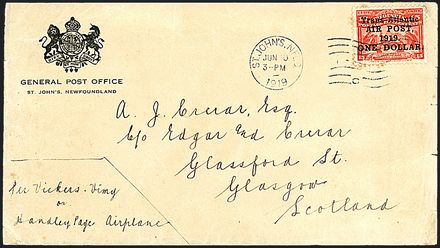 GENERAL POST OFFICE
ST. JOHN'S, NEWFOUNDLAND
ST. JOHN'S, N.F.
JUN
3-PM
1919
Trans-Atlantic
AIR POST,
1919.
ONE DOLLAR.
A. J. Crerar, Esq.
C/o Edgar and Crerar
Glassford St.
Glasgow
Scotland
Per Vickers-Vimy
or
Handley Page Airplane